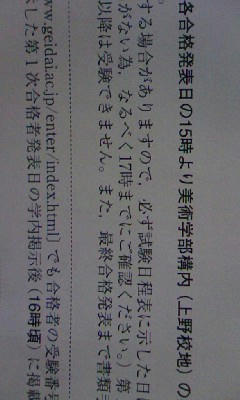 各合格発表日の15時より美術学部構内（上野校地）の
する場合がありますので，必ず試験日程表に示した日に
がない為，なるべく17時までにご確認ください。）第
以降は受験できません。また，最終合格発表まで書類
ww.geidai.ac.jp/enter/index.html〕でも合格者の受験番号
示した第1次合格者発表日の学内掲示後（16時頃）に掲載